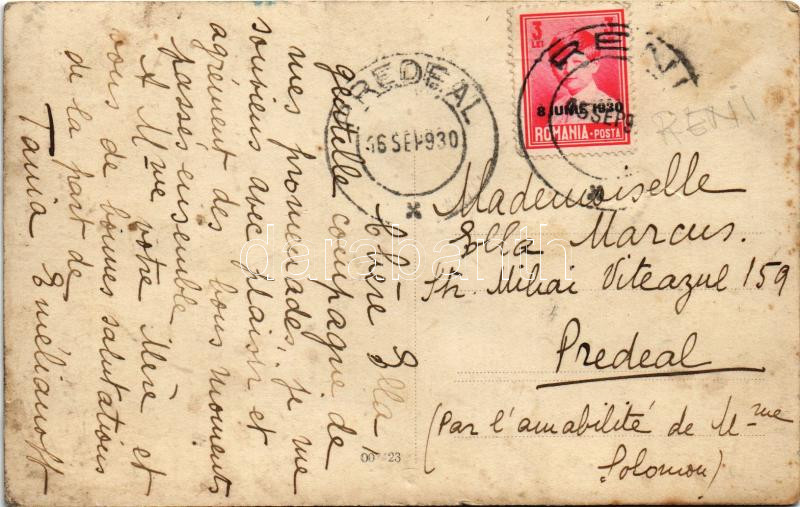 Chère Ella,
gentille compagne de
mes promenades, je me
souviens avec plaisir et
agrément des bons moments
passés ensemble
A Mme votre Mère et
vous de bonnes salutations
de la part de
Tania Eméliànoff
PREDEAL
16 SEP 930
3
LEI
8 IUNIE 1930
ROMANIA-POSTA
RENI
SEP 9
RENI
Mademoiselle
Ella Marcus.
Str. Mihai Viteazul 159
Predeal
(Par l'amabilité de Mme
Solomon)
darabanth
23